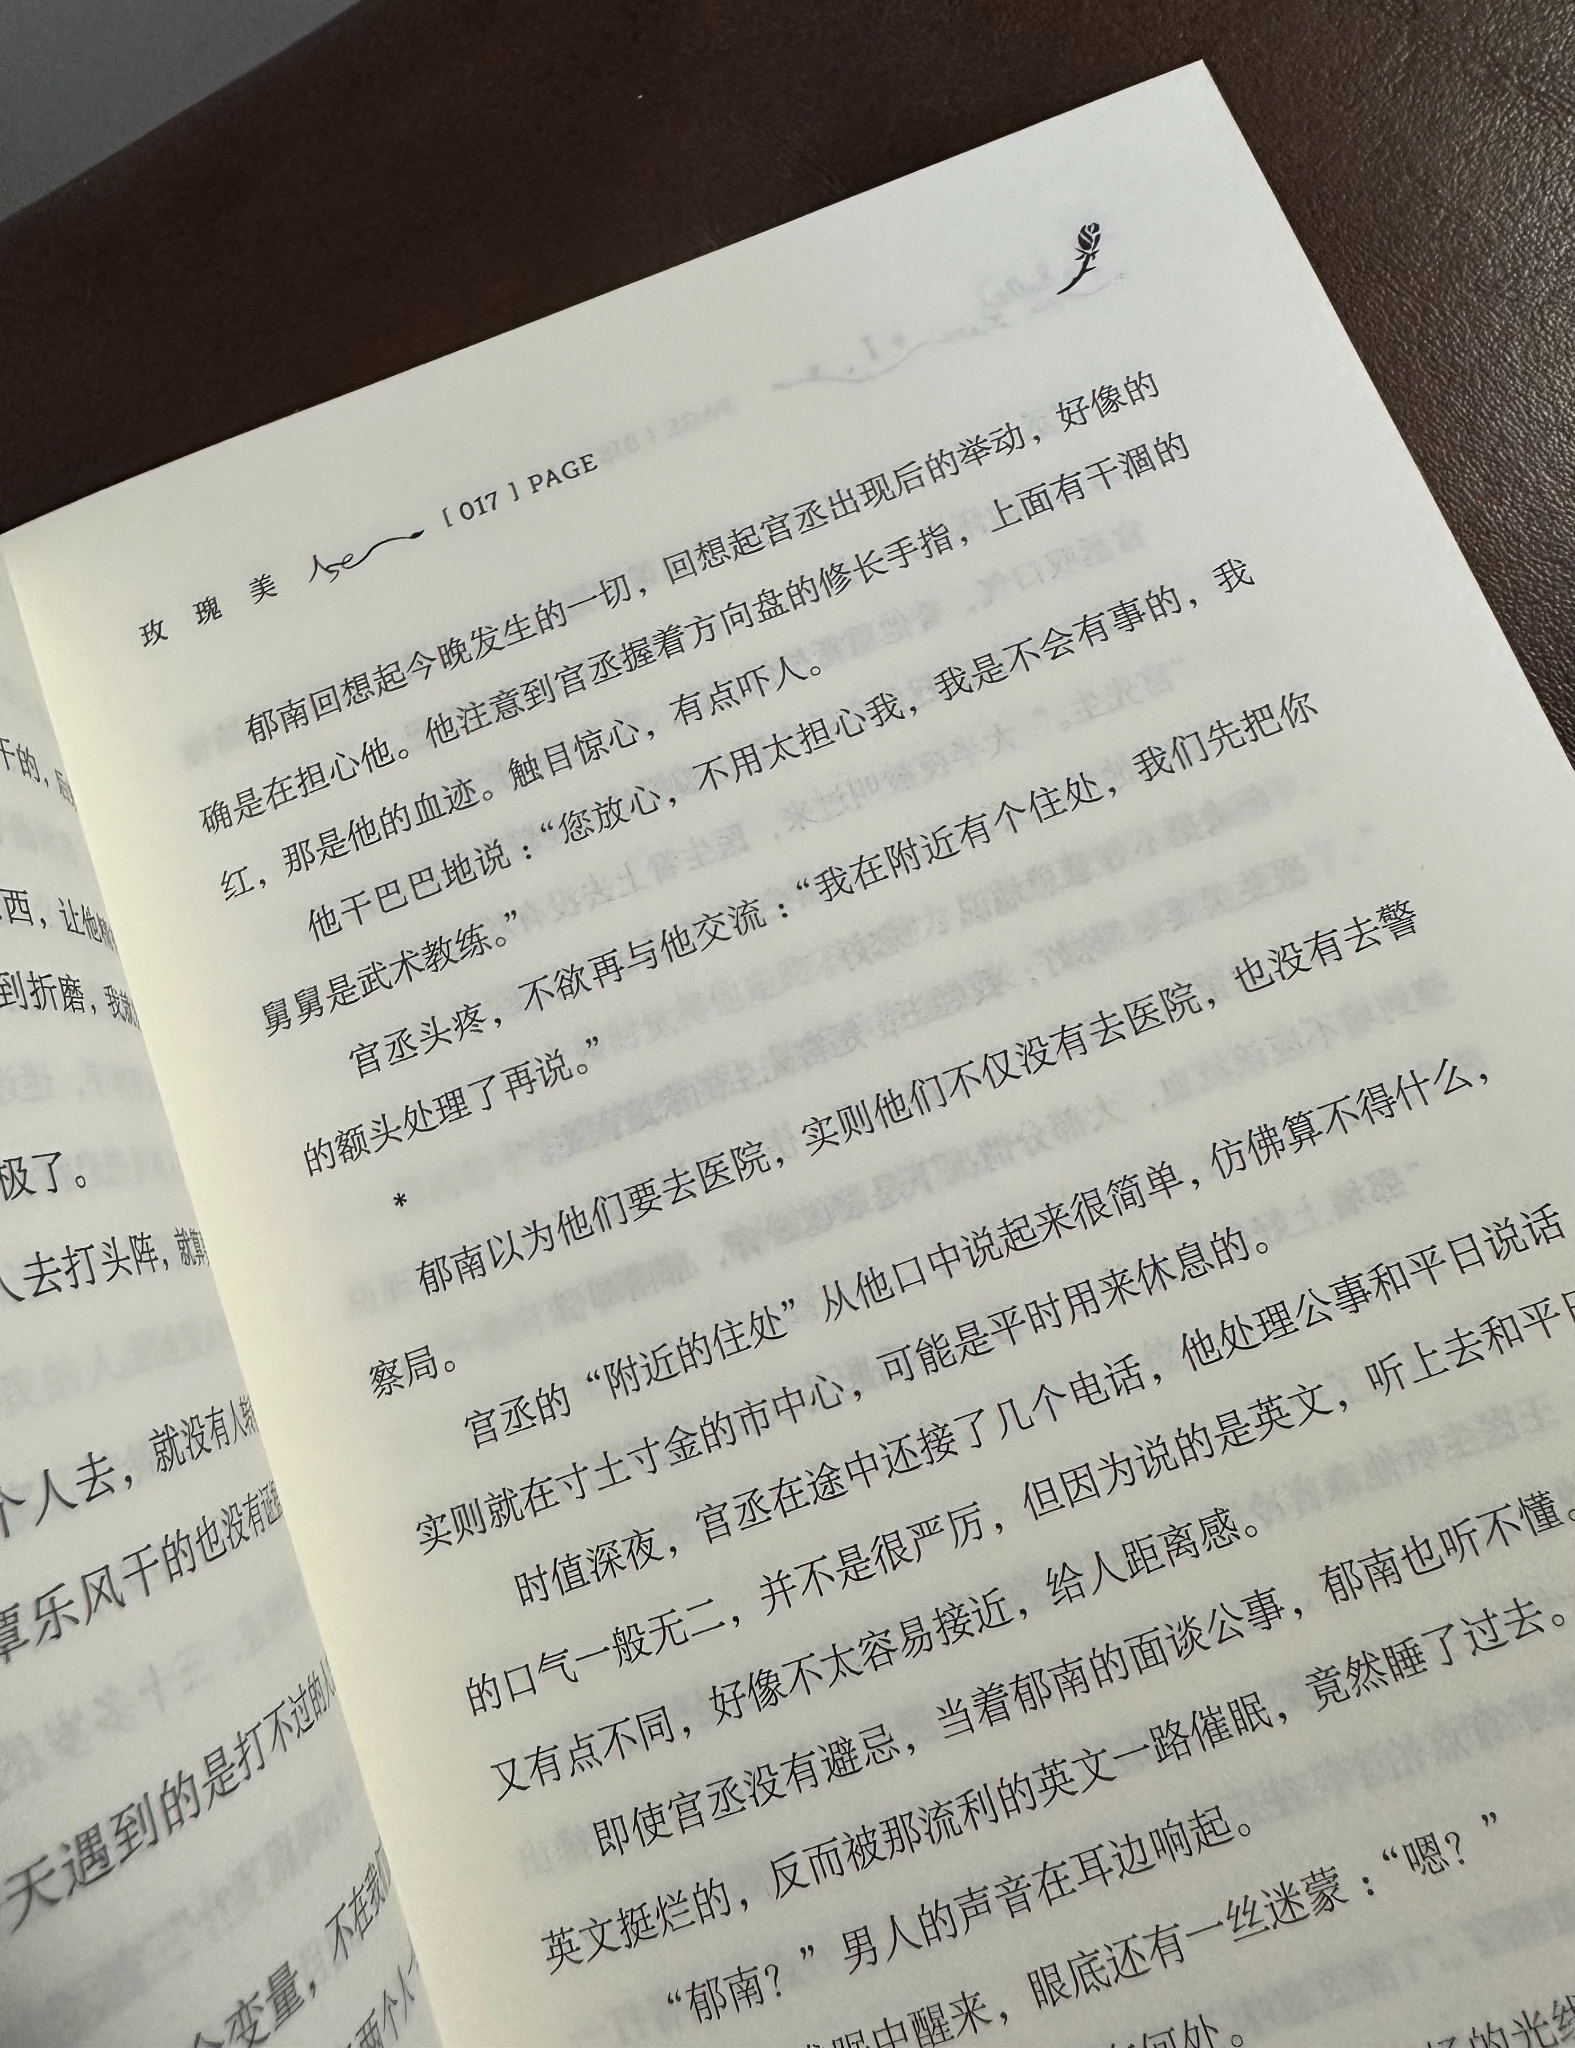 干的，
西，让他
到折磨，我就
极了。
人去打头阵，就算
个人去，就没有人
覃乐风干的也没有证
天遇到的是打不过的人
个变量，不在我
两个人
玫瑰美人 [ 017 ] PAGE
郁南回想起今晚发生的一切，回想起宫丞出现后的举动，好像的
确是在担心他。他注意到宫丞握着方向盘的修长手指，上面有干涸的
红，那是他的血迹。触目惊心，有点吓人。
他干巴巴地说：“您放心，不用太担心我，我是不会有事的，我
舅舅是武术教练。”
宫丞头疼，不欲再与他交流：“我在附近有个住处，我们先把你
的额头处理了再说。”
*
郁南以为他们要去医院，实则他们不仅没有去医院，也没有去警
察局。
宫丞的“附近的住处”从他口中说起来很简单，仿佛算不得什么，
实则就在寸土寸金的市中心，可能是平时用来休息的。
时值深夜，宫丞在途中还接了几个电话，他处理公事和平日说话
的口气一般无二，并不是很严厉，但因为说的是英文，听上去和平日
又有点不同，好像不太容易接近，给人距离感。
即使宫丞没有避忌，当着郁南的面谈公事，郁南也听不懂。
英文挺烂的，反而被那流利的英文一路催眠，竟然睡了过去。
“郁南？”男人的声音在耳边响起。
眠中醒来，眼底还有一丝迷蒙：“嗯？”
何处。
的光线